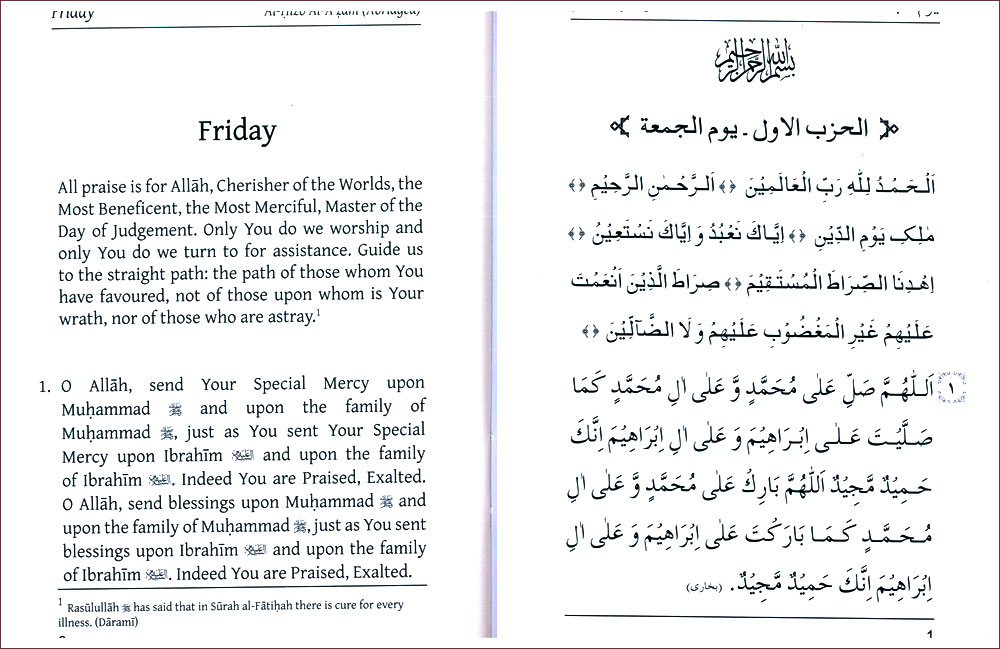 Friday Al-Ḥizb Al-A'ẓam (Abridged)
Friday
All praise is for Allāh, Cherisher of the Worlds, the
Most Beneficent, the Most Merciful, Master of the
Day of Judgement. Only You do we worship and
only You do we turn to for assistance. Guide us
to the straight path: the path of those whom You
have favoured, not of those upon whom is Your
wrath, nor of those who are astray.¹
1. O Allāh, send Your Special Mercy upon
Muḥammad ﷺ and upon the family of
Muḥammad ﷺ, just as You sent Your Special
Mercy upon Ibrahīm and upon the family
of Ibrahīm. Indeed You are Praised, Exalted.
O Allāh, send blessings upon Muḥammad ﷺ and
upon the family of Muḥammad ﷺ, just as You sent
blessings upon Ibrahīm and upon the family
of Ibrahīm. Indeed You are Praised, Exalted.
¹ Rasūlullāh ﷺ has said that in Sūrah al-Fātiḥah there is cure for every
illness. (Dāramī)
بسم الله الرحمن الرحيم
الحزب الاول ـ يوم الجمعة
اَلْحَمْدُ لِلّٰهِ رَبِّ الْعَالَمِيْنَ ﴿﴾ اَلرَّحْمٰنِ الرَّحِيْمِ ﴿﴾
مٰلِكِ يَوْمِ الدِّيْنِ ﴿﴾ اِيَّاكَ نَعْبُدُ وَ اِيَّاكَ نَسْتَعِيْنُ ﴿﴾
اِهْدِنَا الصِّرَاطَ الْمُسْتَقِيْمَ ﴿﴾ صِرَاطَ الَّذِيْنَ اَنْعَمْتَ
عَلَيْهِمْ غَيْرِ الْمَغْضُوْبِ عَلَيْهِمْ وَ لَا الضَّآلِّيْنَ ﴿﴾
١ اَللّٰهُمَّ صَلِّ عَلٰى مُحَمَّدٍ وَّ عَلٰى اٰلِ مُحَمَّدٍ كَمَا
صَلَّيْتَ عَلٰى اِبْرَاهِيْمَ وَ عَلٰى اٰلِ اِبْرَاهِيْمَ اِنَّكَ
حَمِيْدٌ مَّجِيْدٌ اَللّٰهُمَّ بَارِكْ عَلٰى مُحَمَّدٍ وَّ عَلٰى اٰلِ
مُحَمَّدٍ كَمَا بَارَكْتَ عَلٰى اِبْرَاهِيْمَ وَ عَلٰى اٰلِ
اِبْرَاهِيْمَ اِنَّكَ حَمِيْدٌ مَّجِيْدٌ. (بخارى)
1